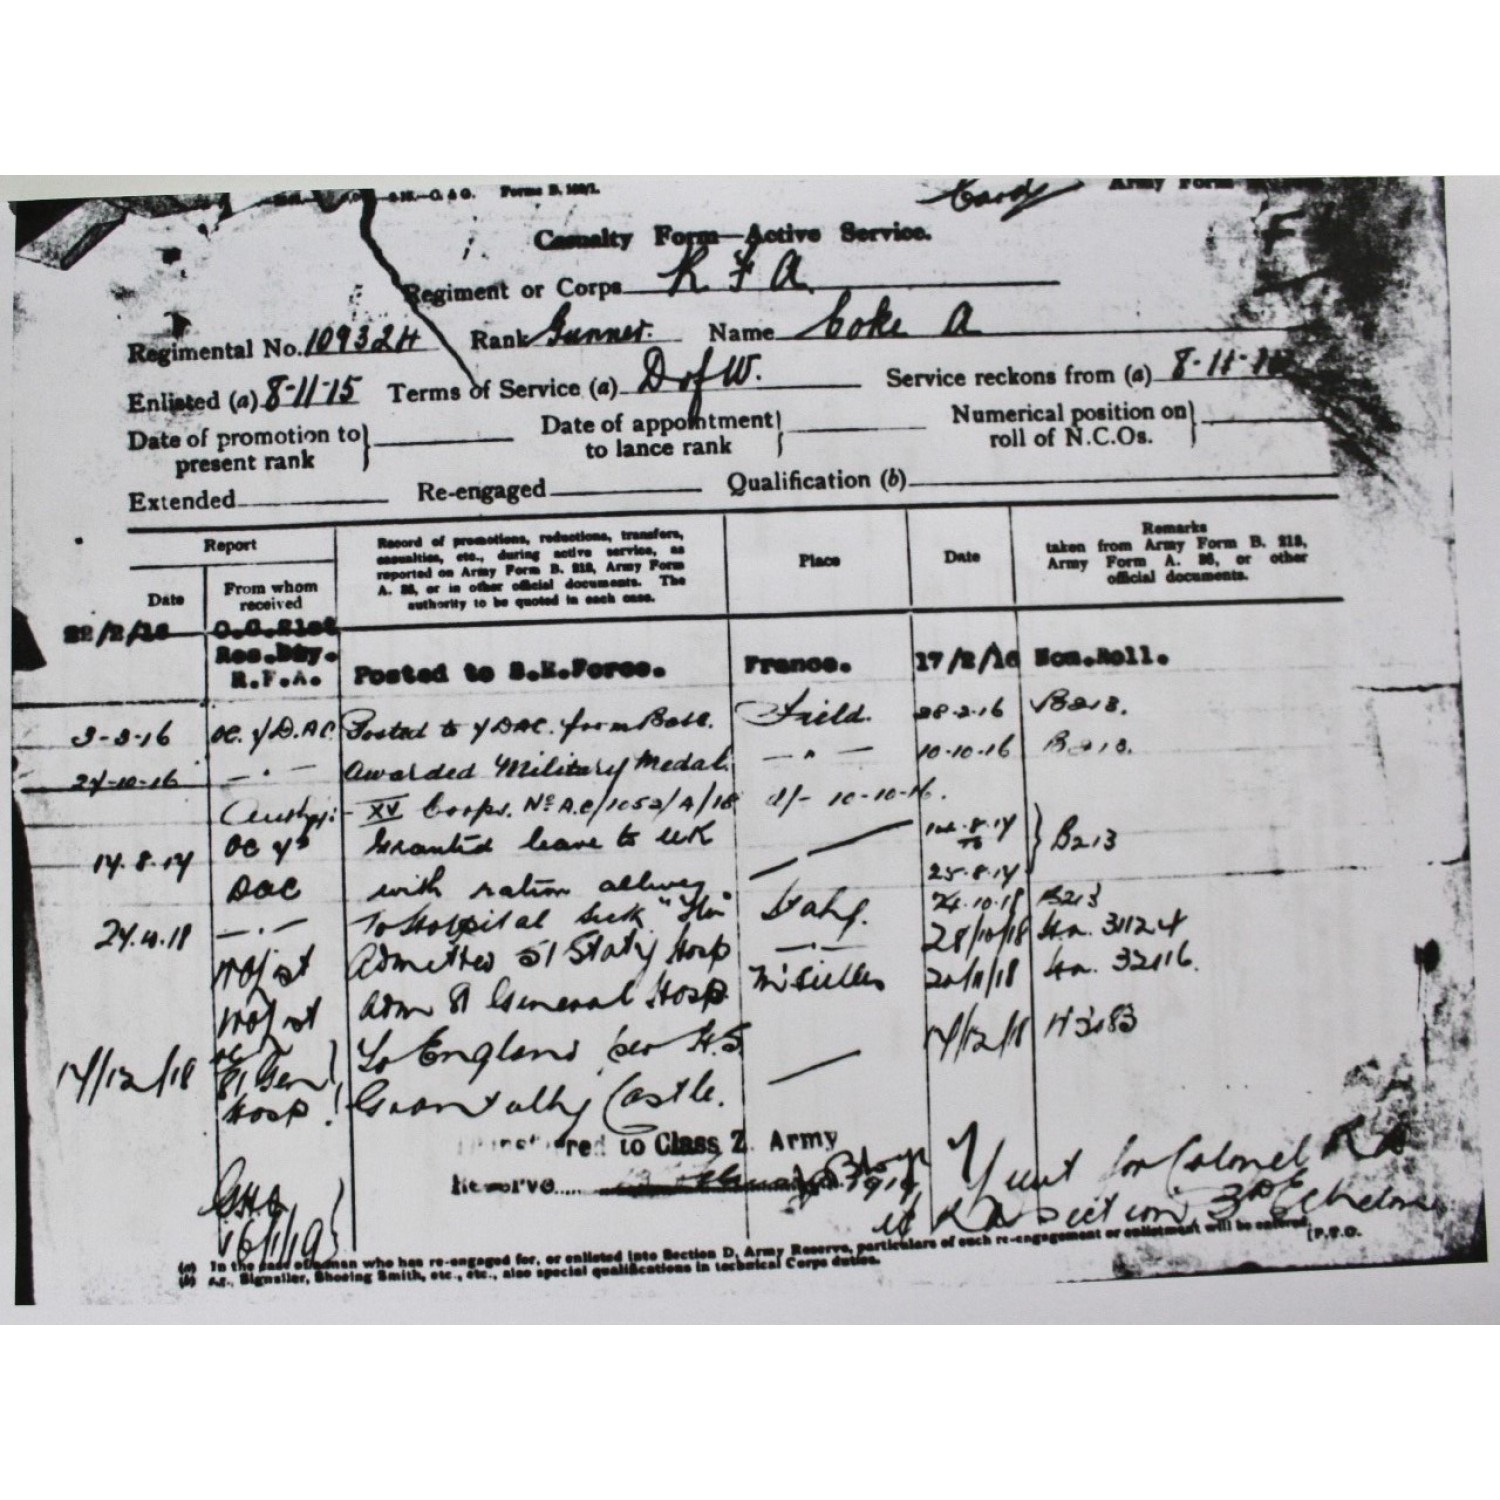 Forms B. 103/1.
Army Form
Casualty Form—Active Service.
Regiment or Corps R F A
Regimental No. 109324 Rank Gunner. Name Coke A
Enlisted (a) 8-11-15 Terms of Service (a) D of W. Service reckons from (a) 8-11-
Date of promotion to present rank } Date of appointment to lance rank } Numerical position on roll of N.C.Os. }
Extended Re-engaged Qualification (b)
Report
Date
From whom received
Record of promotions, reductions, transfers, casualties, etc., during active service, as reported on Army Form B. 213, Army Form A. 36, or in other official documents. The authority to be quoted in each case.
Place
Date
Remarks taken from Army Form B. 213, Army Form A. 36, or other official documents.
22/2/16 O.C.21st Res.Bty. R.F.A. Posted to B.E.Force. France. 17/2/16 Nom.Roll.
3-3-16 OC. Y D.A.C. Posted to Y DAC. from Base. Field. 28-2-16 B213.
24-10-16 — " — Awarded Military Medal. — " — 10-10-16 B213.
Authy:- XV Corps. No A.C/1052/A/18 d/- 10-10-16.
14.8.17 OC Y DAC Granted leave to UK with ration allwce — 14.8.17 to 25.8.17 } B213
24.10.18 — " — To Hospital Sick Italy. 24.10.18 B213
Admitted 51 Staty Hosp — " — 28/10/18 31124
Adm 81 General Hosp M'seilles 20/11/18 32116.
17/12/18 OC 81 Gen Hosp } To England per H.S. Grantully Castle. — 17/12/18 H3083
Transferred to Class Z Army
Reserve..... 1919
16/1/19
Lieut for Colonel RA
RA Section 3rd Echelon
(a) In the case of a man who has re-engaged for, or enlisted into Section D, Army Reserve, particulars of such re-engagement or enlistment will be entered.
(b) e.g., Signaller, Shoeing Smith, etc., etc., also special qualifications in technical Corps duties. [P.T.O.